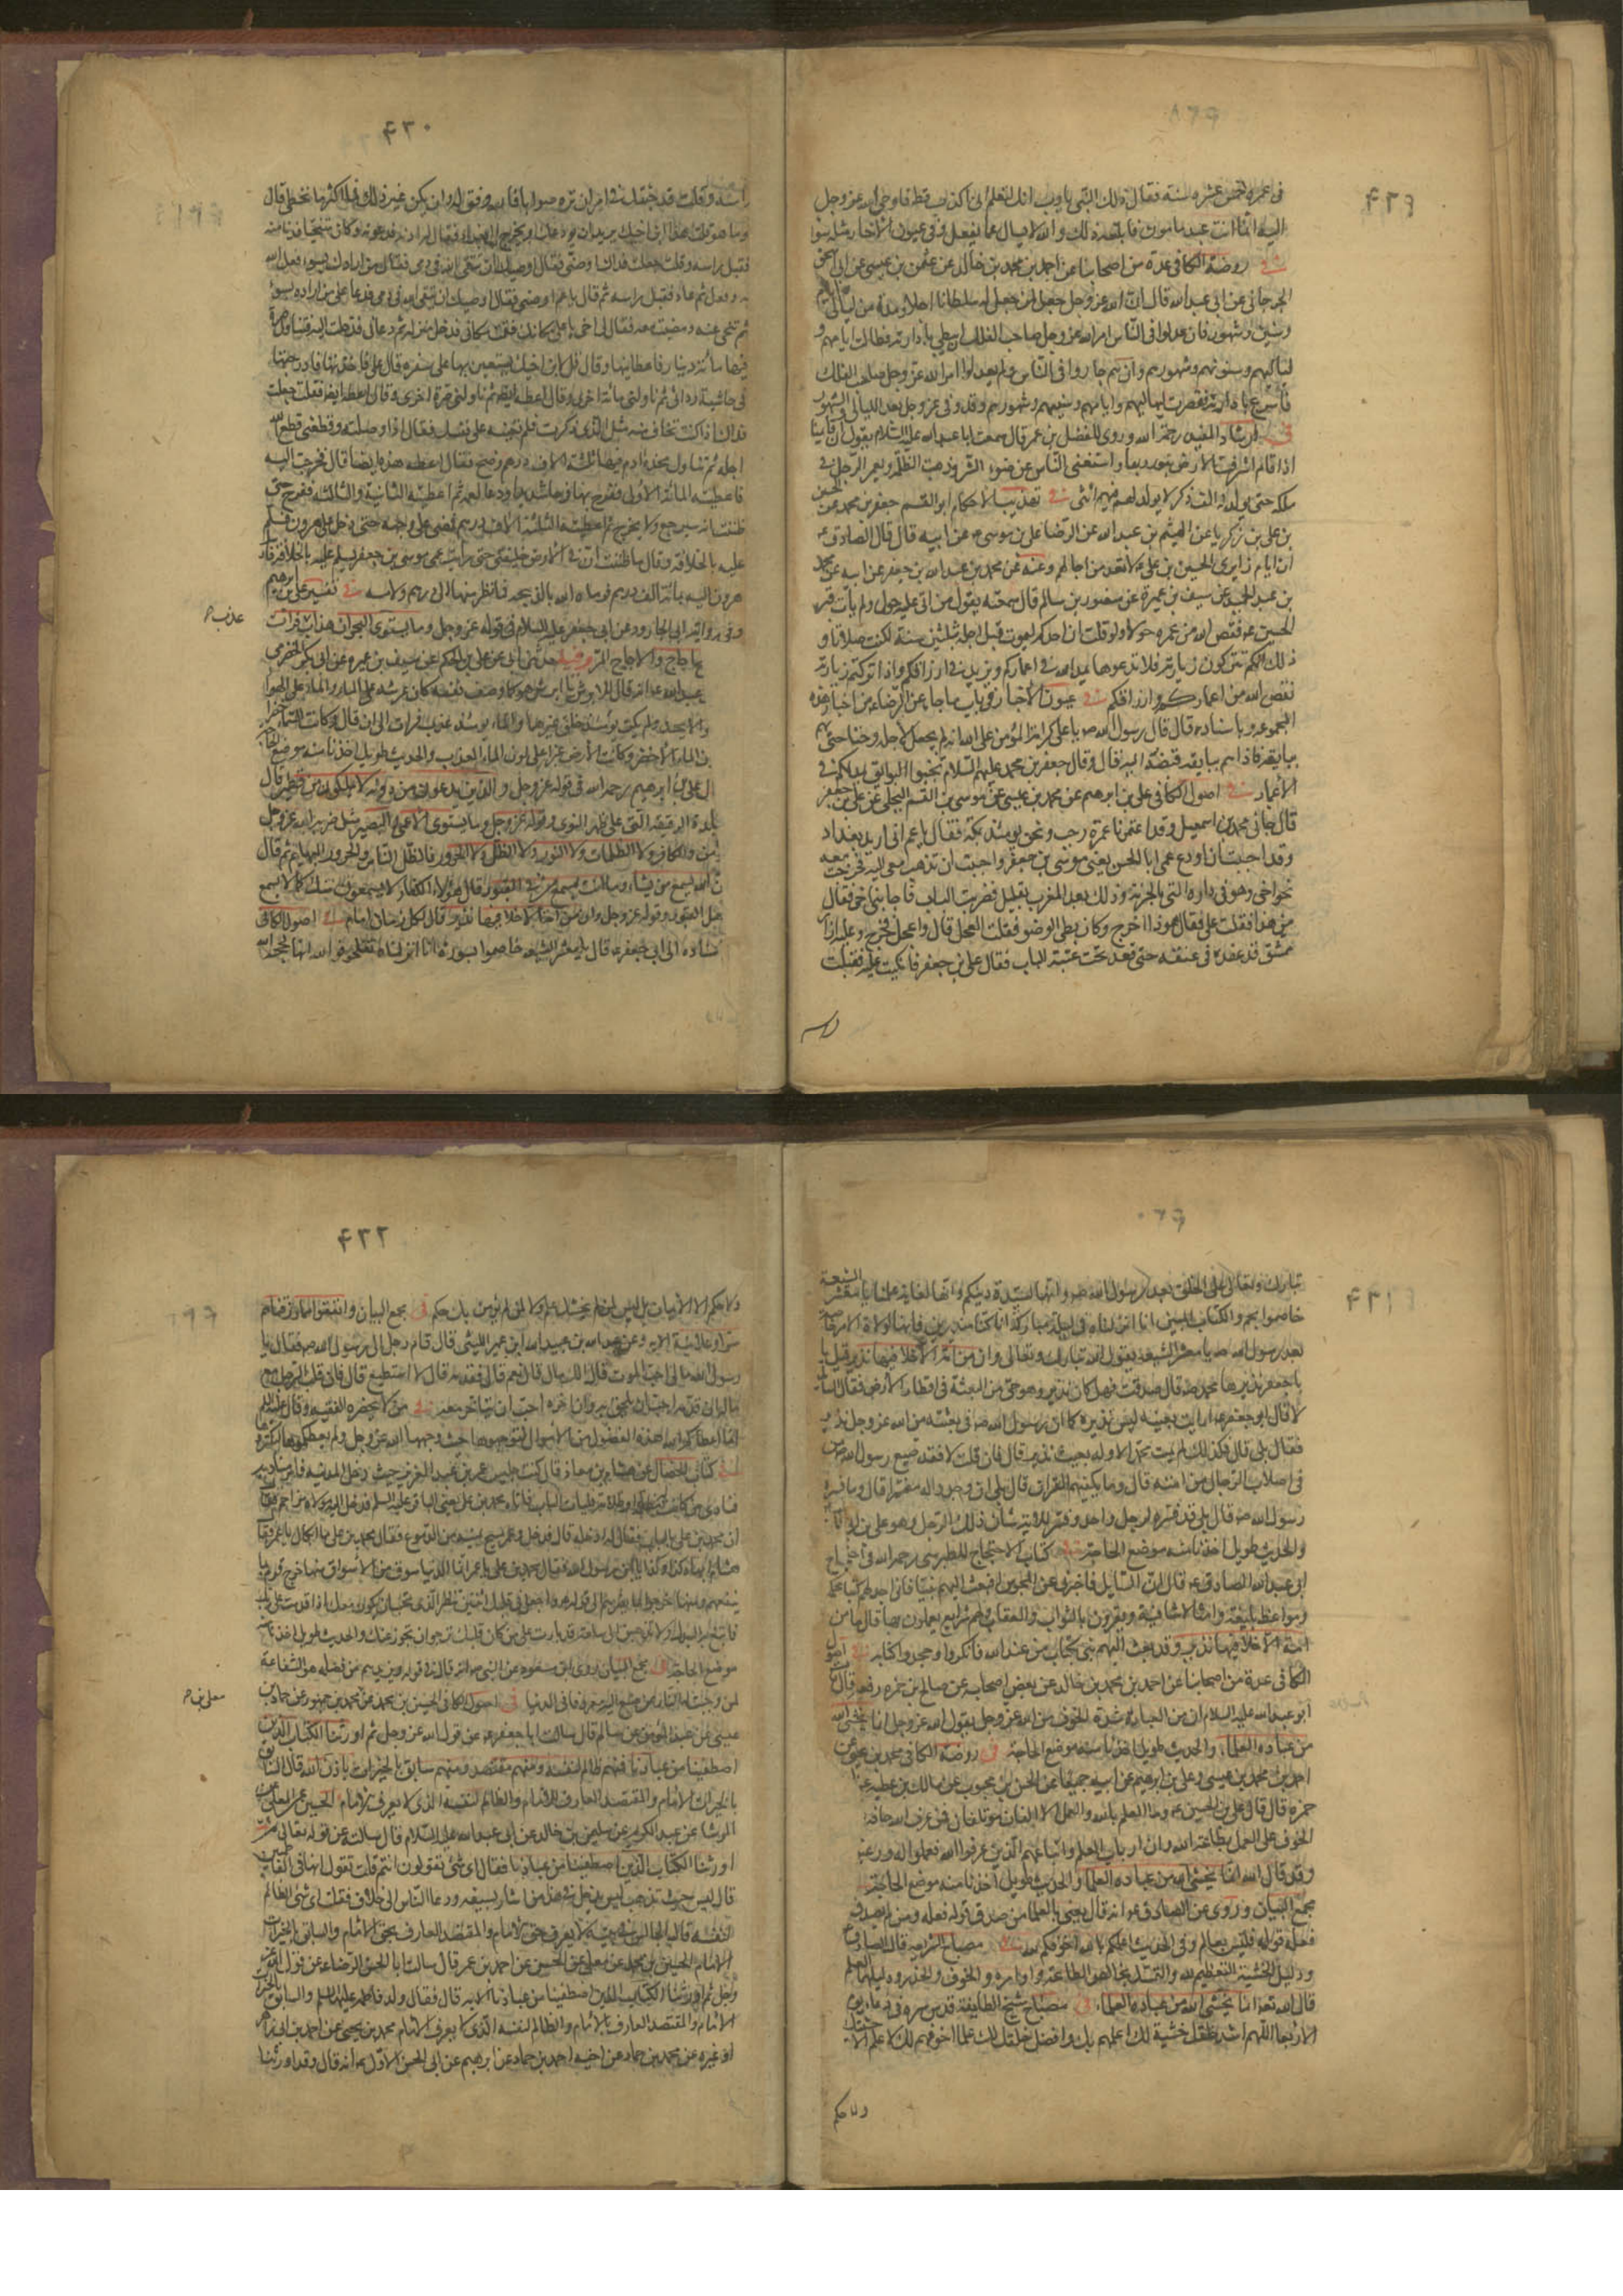 ۴۲۹
في عمره خمس عشرة سنة فقال ذلك النبي يا رب انك لتعلم اني لم اكذب قط فاوحى الله عز وجل
اليه انما انت عبد مأمور فابلغه ذلك والله لا يسأل عما يفعل وفي عيون الأخبار مثله سواء
في روضة الكافي عدة من اصحابنا عن احمد بن محمد بن خالد عن عثمن بن عيسى عن ابي اسحق
الجرجاني عن ابي عبد الله قال ان الله عز وجل جعل لمن جعل له سلطانا اجلا ومدة من ليالي وايام
وسنين وشهور فان عدلوا في الناس امر الله عز وجل صاحب الفلك ان يبطئ بادارته فطالت ايامهم و
لياليهم وسنونهم وشهورهم وان هم جاروا في الناس ولم يعدلوا امر الله عز وجل صاحب الفلك
فاسرع بادارته فقصرت لياليهم وايامهم وسنينهم وشهورهم وقد وفى عز وجل بعدد الليالي والشهور
في ارشاد المفيد رحمه الله وروى المفضل بن عمر قال سمعت ابا عبد الله عليه السلام يقول ان قائمنا
اذا قام اشرقت الارض بنور ربها واستغنى الناس عن ضوء الشمس وذهبت الظلمة ويعمر الرجل في
ملكه حتى يولد له الف ذكر لا يولد لهم فيهم انثى في تهذيب الاحكام ابو القسم جعفر بن محمد عن الحسين
بن علي بن زكريا عن الهيثم بن عبد الله عن الرضا علي بن موسى عن ابيه قال قال الصادق
ان ايام زايري الحسين بن علي لا تعد من اجالهم وعنه عن محمد بن عبد الله بن جعفر عن ابيه عن محمد
بن عبد الحميد عن سيف بن عميرة عن منصور بن حازم قال سمعته يقول من اتى عليه حول ولم يأت قبر
الحسين نقص الله من عمره حولا ولو قلت ان احدكم ليموت قبل اجله بثلثين سنة لكنت صادقا و
ذلك انكم تتركون زيارته فلا تدعوها يمد الله في اعماركم ويزيد في ارزاقكم واذا تركتم زيارته
نقص الله من اعماركم وارزاقكم في عيون الأخبار في باب ما جاء عن الرضا من اخبار هذه
المجموعة وباسناده قال قال رسول الله يا علي كرامة المؤمن على الله انه لم يجعل لأجله وقتا حتى يهم
ببايقة فاذا هم ببايقة قبضه اليه قال وقال جعفر بن محمد عليهم السلام تجنبوا البوايق يمد لكم في
الأعمار في اصول الكافي علي بن ابرهيم عن محمد بن عيسى عن موسى بن القسم البجلي عن علي بن جعفر
قال جائني محمد بن اسمعيل وقد اعتمرنا عمرة رجب ونحن يومئذ بمكة فقال يا عم اني اريد بغداد
وقد احببت ان اودع عمي ابا الحسن يعني موسى بن جعفر واحببت ان تذهب معي اليه فخرجت معه
نحو اخي وهو في داره التي بالحوبة وذلك بعد المغرب بقليل فضربت الباب فاجابني اخي فقال
من هذا فقلت علي فقال هوذا اخرج وكان بطئ الوضوء فقلت العجل قال واعجل فخرج وعليه ازار
ممشق قد عقده في عنقه حتى قعد تحت عتبة الباب فقال علي بن جعفر فانكببت عليه فقبلت
راسه
۴۳۰
راسه وقلت قد جئتك في امر ان تره صوابا فالله وفق له وان يكن غير ذلك فما اكثر ما نخطي قال
وما هو قلت هذا ابن اخيك يريد ان يودعك ويخرج الى بغداد فقال لي ادعه فدعوته وكان متنحيا فدنا منه
فقبل راسه وقال جعلت فداك اوصني فقال اوصيك ان تتقي الله في دمي فقال من ارادك بسوء فعل الله
به وفعل ثم عاد فقبل راسه ثم قال يا عم اوصني فقال اوصيك ان تتقي الله في دمي فدعا على من اراده بسوء
ثم تنحى عنه ومضيت معه فقال لي اخي يا علي مكانك فقمت مكاني فدخل منزله ثم دعاني فدخلت اليه فتناول صرة
فيها مائة دينار فاعطانيها وقال قل لابن اخيك يستعين بها على سفره قال علي فاخذتها فادرجتها
في حاشية ردائي ثم ناولني مائة اخرى وقال اعطه ايضا ثم ناولني صرة اخرى وقال اعطه ايضا فقلت جعلت
فداك اذا كنت تخاف منه مثل الذي ذكرت فلم تعينه على نفسك فقال اذا وصلته وقطعني قطع الله
اجله ثم تناول مخدة ادم فيها ثلثة الاف درهم وضح فقال اعطه هذه ايضا قال فخرجت اليه
فاعطيته المائة الأولى ففرح بها فرحا شديدا ودعا لعمه ثم اعطيته الثانية والثالثة ففرح حتى
ظننت انه سيرجع ولا يخرج ثم اعطيته الثلثة الاف درهم فمضى على وجهه حتى دخل على هرون فسلم
عليه بالخلافة وقال ما ظننت ان في الأرض خليفتين حتى رأيت عمي موسى بن جعفر يسلم عليه بالخلافة فارسل
هرون اليه بمائة الف درهم فرماه الله بالذبحة فما نظر منها الى درهم ولا مسه في تفسير علي بن ابرهيم
وفي رواية ابي الجارود عن ابي جعفر عليه السلام في قوله عز وجل وما يستوي البحران هذا عذب فرات
عذب
ملح اجاج والاجاج المر وفيه حدثني ابي عن علي بن الحكم عن سيف بن عميرة عن ابي بكر الحضرمي
علي بن ابرهيم رحمه الله في قوله عز وجل والذين يدعون من دونه لا يملكون من قطمير قال
الجلدة الرقيقة التي على ظهر النوى وقوله عز وجل وما يستوي الأعمى والبصير مثل ضربه الله عز وجل
للمؤمن والكافر ولا الظلمات ولا النور ولا الظل ولا الحرور فالظل الناس والحرور البهايم ثم قال
ان الله يسمع من يشاء وما انت بمسمع من في القبور قال هؤلاء الكفار لا يسمعون منك كما لا يسمع
اهل القبور وقوله عز وجل وان من امة الا خلا فيها نذير قال لكل زمان امام في اصول الكافي
باسناده الى ابي جعفر قال يا معشر الشيعة خاصموا بسورة انا انزلناه تفلحوا فوالله انها لحجة الله
۴۳۱
تبارك وتعالى على الخلق بعد رسول الله وانها لسيدة دينكم وانها لغاية علمنا يا معشر الشيعة
خاصموا بحم والكتاب المبين انا انزلناه في ليلة مباركة انا كنا منذرين فانها لولاة الامر خاصة
بعد رسول الله يا معشر الشيعة يقول الله تبارك وتعالى وان من امة الا خلا فيها نذير قيل يا
با جعفر نذيرها محمد قال صدقت فهل كان نذير وهو حي من البعثة في اقطار الأرض فقال السائل
لا قال ابو جعفر ارايت بعيثه ليس نذيره كما ان رسول الله في بعثته من الله عز وجل نذير
فقال بلى قال فكذلك لم يمت محمد الا وله بعيث نذير قال فان قلت لا فقد ضيع رسول الله من
في اصلاب الرجال من امته قال وما يكفيهم القران قال بلى ان وجدوا له مفسرا قال وما فسره
رسول الله قال بلى قد فسره لرجل واحد وفسر للامة شأن ذلك الرجل وهو علي بن ابي طالب
والحديث طويل اخذنا منه موضع الحاجة في كتاب الاحتجاج للطبرسي رحمه الله في احتجاج
ابي عبد الله الصادق قال ان السائل فاخبرني عن المجوس افبعث اليهم نبيا فاني اجد لهم كتبا محكمة
ومواعظ بليغة وامثالا شافية ويقرون بالثواب والعقاب ولهم شرايع يعملون بها قال ما من
امة الا خلا فيها نذير وقد بعث اليهم نبي بكتاب من عند الله فانكروه وجحدوا كتابه في اصول
الكافي عدة من اصحابنا عن احمد بن محمد بن خالد عن بعض اصحابه عن صالح بن حمزة رفعه قال قال
ابو عبد الله عليه السلام ان من العبادة شدة الخوف من الله عز وجل يقول الله عز وجل انما يخشى الله
من عباده العلماء والحديث طويل اخذنا منه موضع الحاجة في روضة الكافي محمد بن يحيى عن
احمد بن محمد بن عيسى وعلي بن ابرهيم عن ابيه جميعا عن الحسن بن محبوب عن مالك بن عطية عن ابي
حمزة قال قال علي بن الحسين وما العلم بالله والعمل الا الفان مؤتلفان فمن عرف الله خافه
الخوف على العمل بطاعة الله وان ارباب العلم واتباعهم الذين عرفوا الله فعملوا له ورغبوا
وقد قال الله انما يخشى الله من عباده العلماء والحديث طويل اخذنا منه موضع الحاجة
مجمع البيان وروى عن الصادق انه قال يعني بالعلماء من صدق قوله فعله ومن لم يصدق
فعله قوله فليس بعالم وفي الحديث اعلمكم بالله اخوفكم لله في مصباح الشريعة قال الصادق
ودليل الخشية التعظيم لله والتمسك بخالص الطاعة واوامره والخوف والحذر ودليلهما العلم
قال الله تعالى انما يخشى الله من عباده العلماء في مصباح شيخ الطايفة قدس سره في دعاء يوم
الاربعا اللهم اشد خلقك خشية لك اعلمهم بك وافضل خلقك لك عملا اخوفهم لك لا علم الا خشيتك
ولا حكم
۴۳۲
ولا حكم الا الايمان بك ليس لمن لم يخشك علم ولا لمن لم يؤمن بك حكم في مجمع البيان وانفقوا مما رزقناهم
سرا وعلانية الاية وعن عبد الله بن عبيد الله ابن عمير الليثي قال قام رجل الى رسول الله فقال يا
رسول الله ما لي لا احب الموت قال الك مال قال نعم قال فقدمه قال لا استطيع قال فان قلب الرجل مع
ماله ان قدمه احب ان يلحق به وان اخره احب ان يتاخر معه في من لا يحضره الفقيه وقال عليه السلام
انما اعطاكم الله هذه الفضول من الأموال لتوجهوها حيث وجهها الله عز وجل ولم يعطكموها لتكنزوها
في كتاب الخصال عن هشام بن معاذ قال كنت جليس عمر بن عبد العزيز حيث دخل المدينة فامر مناديه
فنادى من كانت له مظلمة او ظلامة فليأت الباب فاتاه محمد بن علي يعني الباقر عليه السلم فدخل اليه مولاه مزاحم فقال
ان محمد بن علي بالباب فقال له ادخله قال فدخل وعمر يمسح عينيه من الدموع فقال محمد بن علي ما ابكاك يا عمر فقال
هشام ابكاه كذا وكذا يابن رسول الله فقال محمد بن علي يا عمر انما الدنيا سوق من الأسواق منها خرج قوم بما
موضع الحاجة في مجمع البيان وروى ابن مسعود عن النبي انه قال في قوله ويزيدهم من فضله هو الشفاعة
لمن وجبت له النار ممن صنع اليه معروفا في الدنيا في اصول الكافي الحسين بن محمد عن محمد بن جمهور عن حماد بن
معلى بن
عيسى عن عبد المؤمن عن سالم قال سالت ابا جعفر عن قول الله عز وجل ثم اورثنا الكتاب الذين
اصطفينا من عبادنا فمنهم ظالم لنفسه ومنهم مقتصد ومنهم سابق بالخيرات باذن الله قال السابق
بالخيرات الامام والمقتصد العارف للامام والظالم لنفسه الذي لا يعرف الامام الحسين عن المعلى عن
الوشا عن عبد الكريم عن سليمن بن خالد عن ابي عبد الله عليه السلام قال سالته عن قوله تعالى ثم
اورثنا الكتاب الذين اصطفينا من عبادنا فقال اي شئ تقولون انتم قلت نقول انها في الفاطميين
قال ليس حيث تذهب ليس يدخل في هذا من اشار بسيفه ودعا الناس الى خلاف فقلت اي شئ الظالم
لنفسه قال الجالس في بيته لا يعرف حق الامام والمقتصد العارف بحق الامام والسابق بالخيرات
الامام الحسين بن محمد عن معلى عن الحسن عن احمد بن عمر قال سالت ابا الحسن الرضا عن قول الله عز
وجل ثم اورثنا الكتاب الذين اصطفينا من عبادنا الاية قال فقال ولد فاطمة عليها السلم والسابق بالخيرات
الامام والمقتصد العارف بالامام والظالم لنفسه الذي لا يعرف الامام محمد بن يحيى عن احمد بن ابي زاهر
او غيره عن محمد بن حماد عن اخيه احمد بن حماد عن ابرهيم عن ابي الحسن الاول انه قال وقد اورثنا